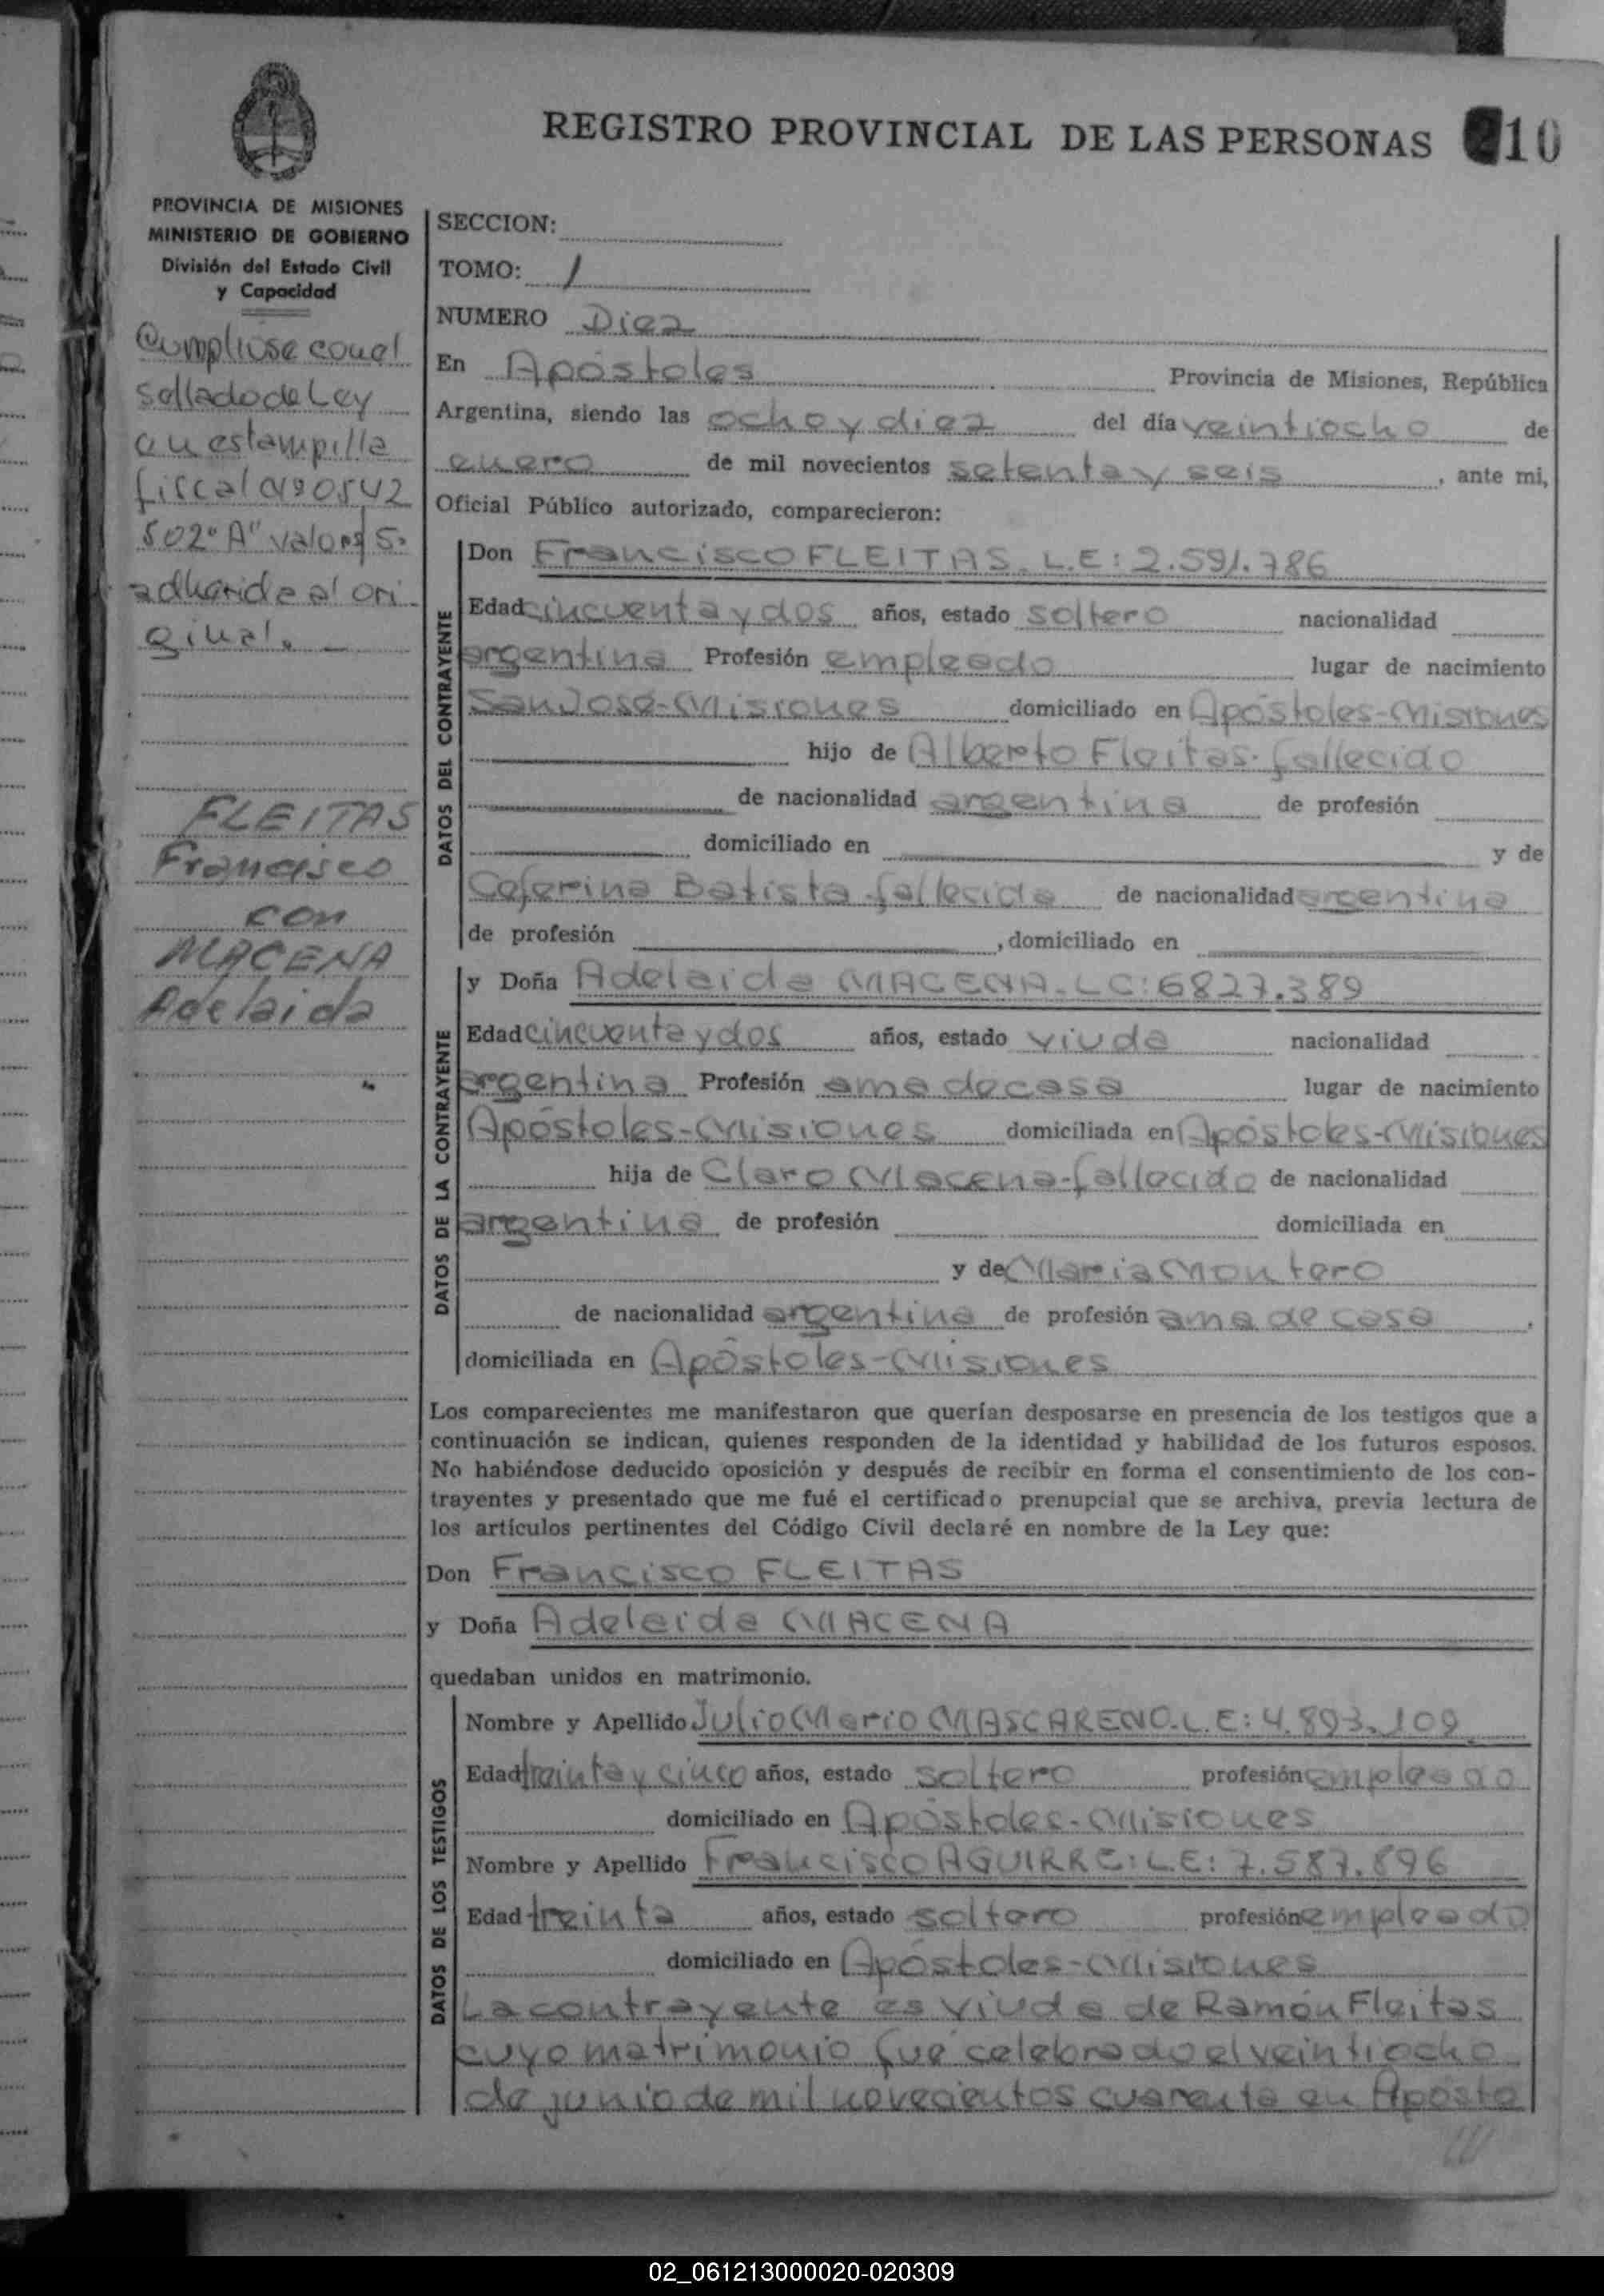 REGISTRO PROVINCIAL DE LAS PERSONAS 210
PROVINCIA DE MISIONES
MINISTERIO DE GOBIERNO
División del Estado Civil
y Capacidad
Cumpliose con el
sellado de Ley
en estampilla
fiscal Nº 0542
502 "A" valor $ 5.
adherida al ori
ginal. —
FLEITAS
Francisco
con
MACENA
Adelaida
SECCION:
TOMO: 1
NUMERO Diez
En Apóstoles Provincia de Misiones, República
Argentina, siendo las ocho y diez del día veintiocho de
enero de mil novecientos setenta y seis, ante mi,
Oficial Público autorizado, comparecieron:
DATOS DEL CONTRAYENTE
Don Francisco FLEITAS. L.E: 2.591.786
Edad cincuenta y dos años, estado soltero nacionalidad
argentina Profesión empleado lugar de nacimiento
San José-Misiones domiciliado en Apóstoles-Misiones
hijo de Alberto Fleitas-fallecido
de nacionalidad argentina de profesión
domiciliado en y de
Ceferina Batista-fallecida de nacionalidad argentina
de profesión , domiciliado en
DATOS DE LA CONTRAYENTE
y Doña Adelaida MACENA-LC: 6827.389
Edad cincuenta y dos años, estado viuda nacionalidad
argentina Profesión ama de casa lugar de nacimiento
Apóstoles-Misiones domiciliada en Apóstoles-Misiones
hija de Claro Macena-fallecido de nacionalidad
argentina de profesión domiciliada en
y de Maria Montero
de nacionalidad argentina de profesión ama de casa ,
domiciliada en Apóstoles-Misiones
Los comparecientes me manifestaron que querían desposarse en presencia de los testigos que a
continuación se indican, quienes responden de la identidad y habilidad de los futuros esposos.
No habiéndose deducido oposición y después de recibir en forma el consentimiento de los con-
trayentes y presentado que me fué el certificado prenupcial que se archiva, previa lectura de
los artículos pertinentes del Código Civil declaré en nombre de la Ley que:
Don Francisco FLEITAS
y Doña Adelaida MACENA
quedaban unidos en matrimonio.
DATOS DE LOS TESTIGOS
Nombre y Apellido Julio Mario MASCARENO. L.E: 4.893.109
Edad treinta y cinco años, estado soltero profesión empleado
domiciliado en Apóstoles-Misiones
Nombre y Apellido Francisco AGUIRRE: L.E: 7.587.896
Edad treinta años, estado soltero profesión empleado
domiciliado en Apóstoles-Misiones
La contrayente es viuda de Ramón Fleitas
cuyo matrimonio fué celebrado el veintiocho
de junio de mil novecientos cuarenta en Aposto
02_061213000020-020309